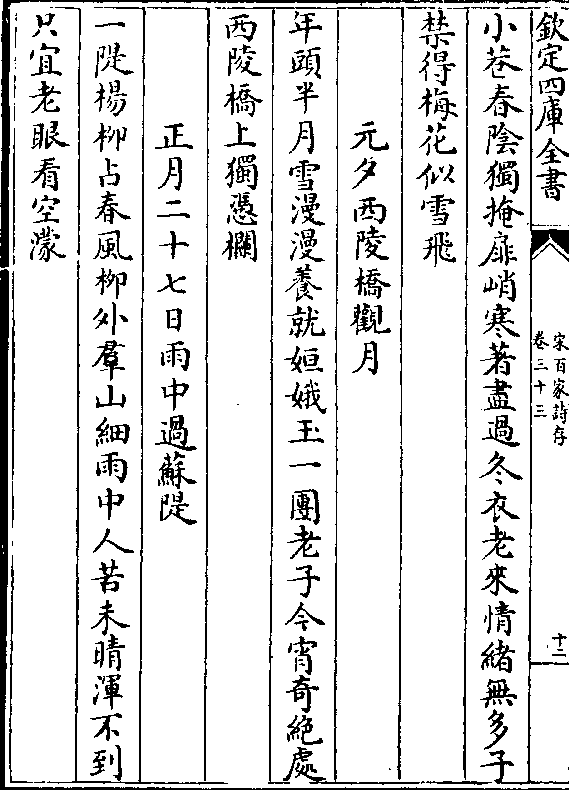 欽定四庫全書
宋百家詩存
卷三十三
十二
小巷春陰獨掩扉峭寒著盡過冬衣老來情緒無多子
禁得梅花似雪飛
元夕西陵橋觀月
年頭半月雪漫漫養就姮娥玉一團老子今宵奇絶處
西陵橋上獨憑欄
正月二十七日雨中過蘇隄
一隄楊柳占春風柳外羣山細雨中人苦未晴渾不到
只宜老眼看空濛